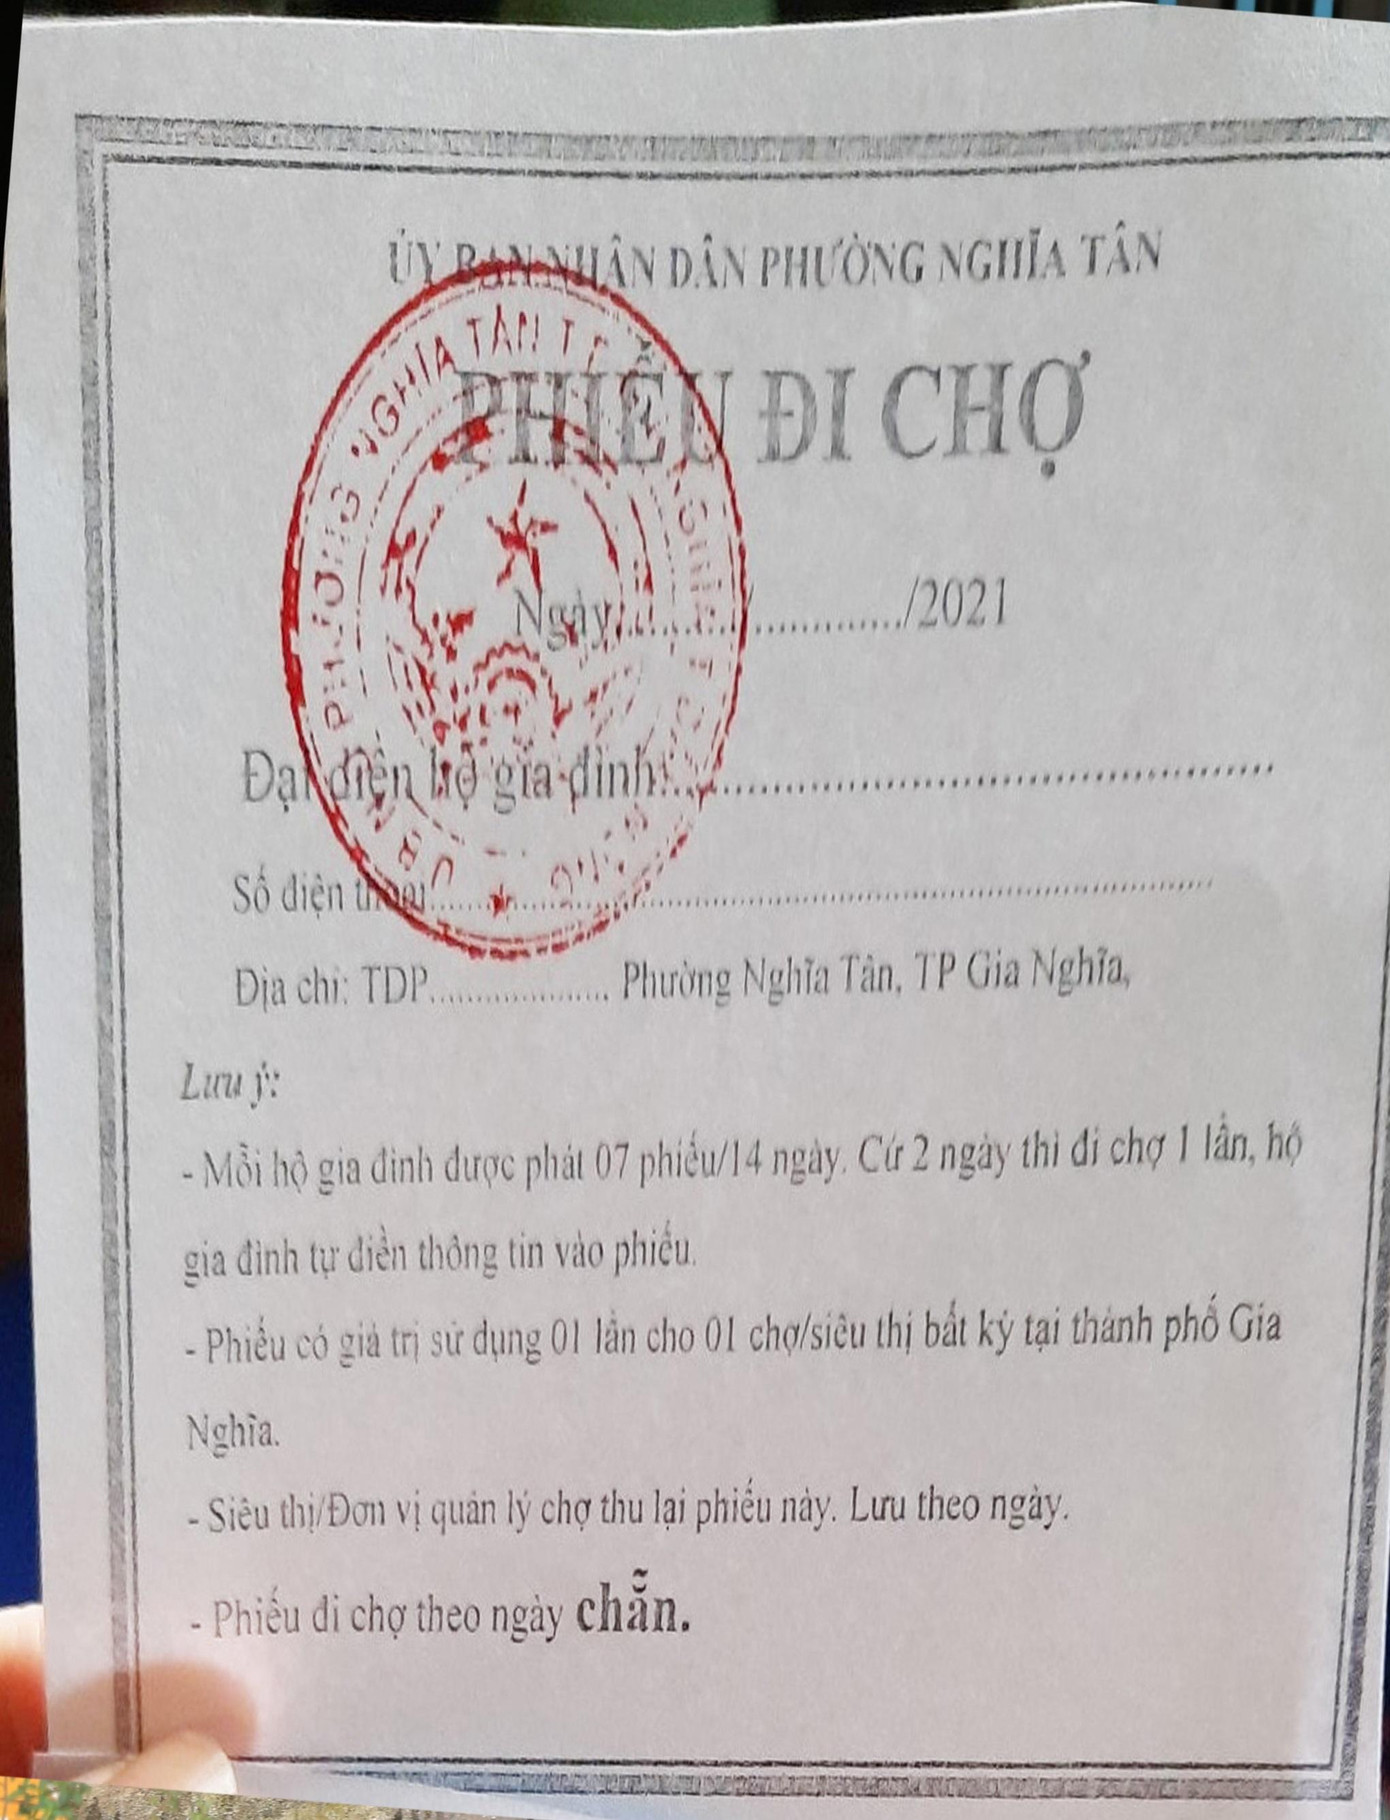 ỦY BAN NHÂN DÂN PHƯỜNG NGHĨA TÂN
PHIẾU ĐI CHỢ
Ngày............................/2021
Đại diện hộ gia đình:..............................................
Số điện thoại..............................................................
Địa chỉ: TDP.................... Phường Nghĩa Tân, TP Gia Nghĩa,
Lưu ý:
- Mỗi hộ gia đình được phát 07 phiếu/14 ngày. Cứ 2 ngày thì đi chợ 1 lần, hộ
gia đình tự điền thông tin vào phiếu.
- Phiếu có giá trị sử dụng 01 lần cho 01 chợ/siêu thị bất kỳ tại thành phố Gia
Nghĩa.
- Siêu thị/Đơn vị quản lý chợ thu lại phiếu này. Lưu theo ngày.
- Phiếu đi chợ theo ngày chẵn.
PHƯỜNG NGHĨA TÂN